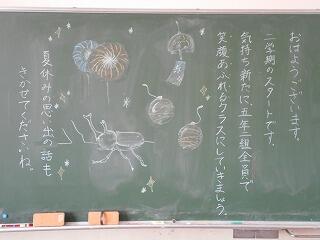 おはようございます。
二学期のスタートです。
気持ち新たに、五年一組全員で
笑顔あふれるクラスにしていきましょう。
夏休みの思い出の話も
きかせてくださいね。